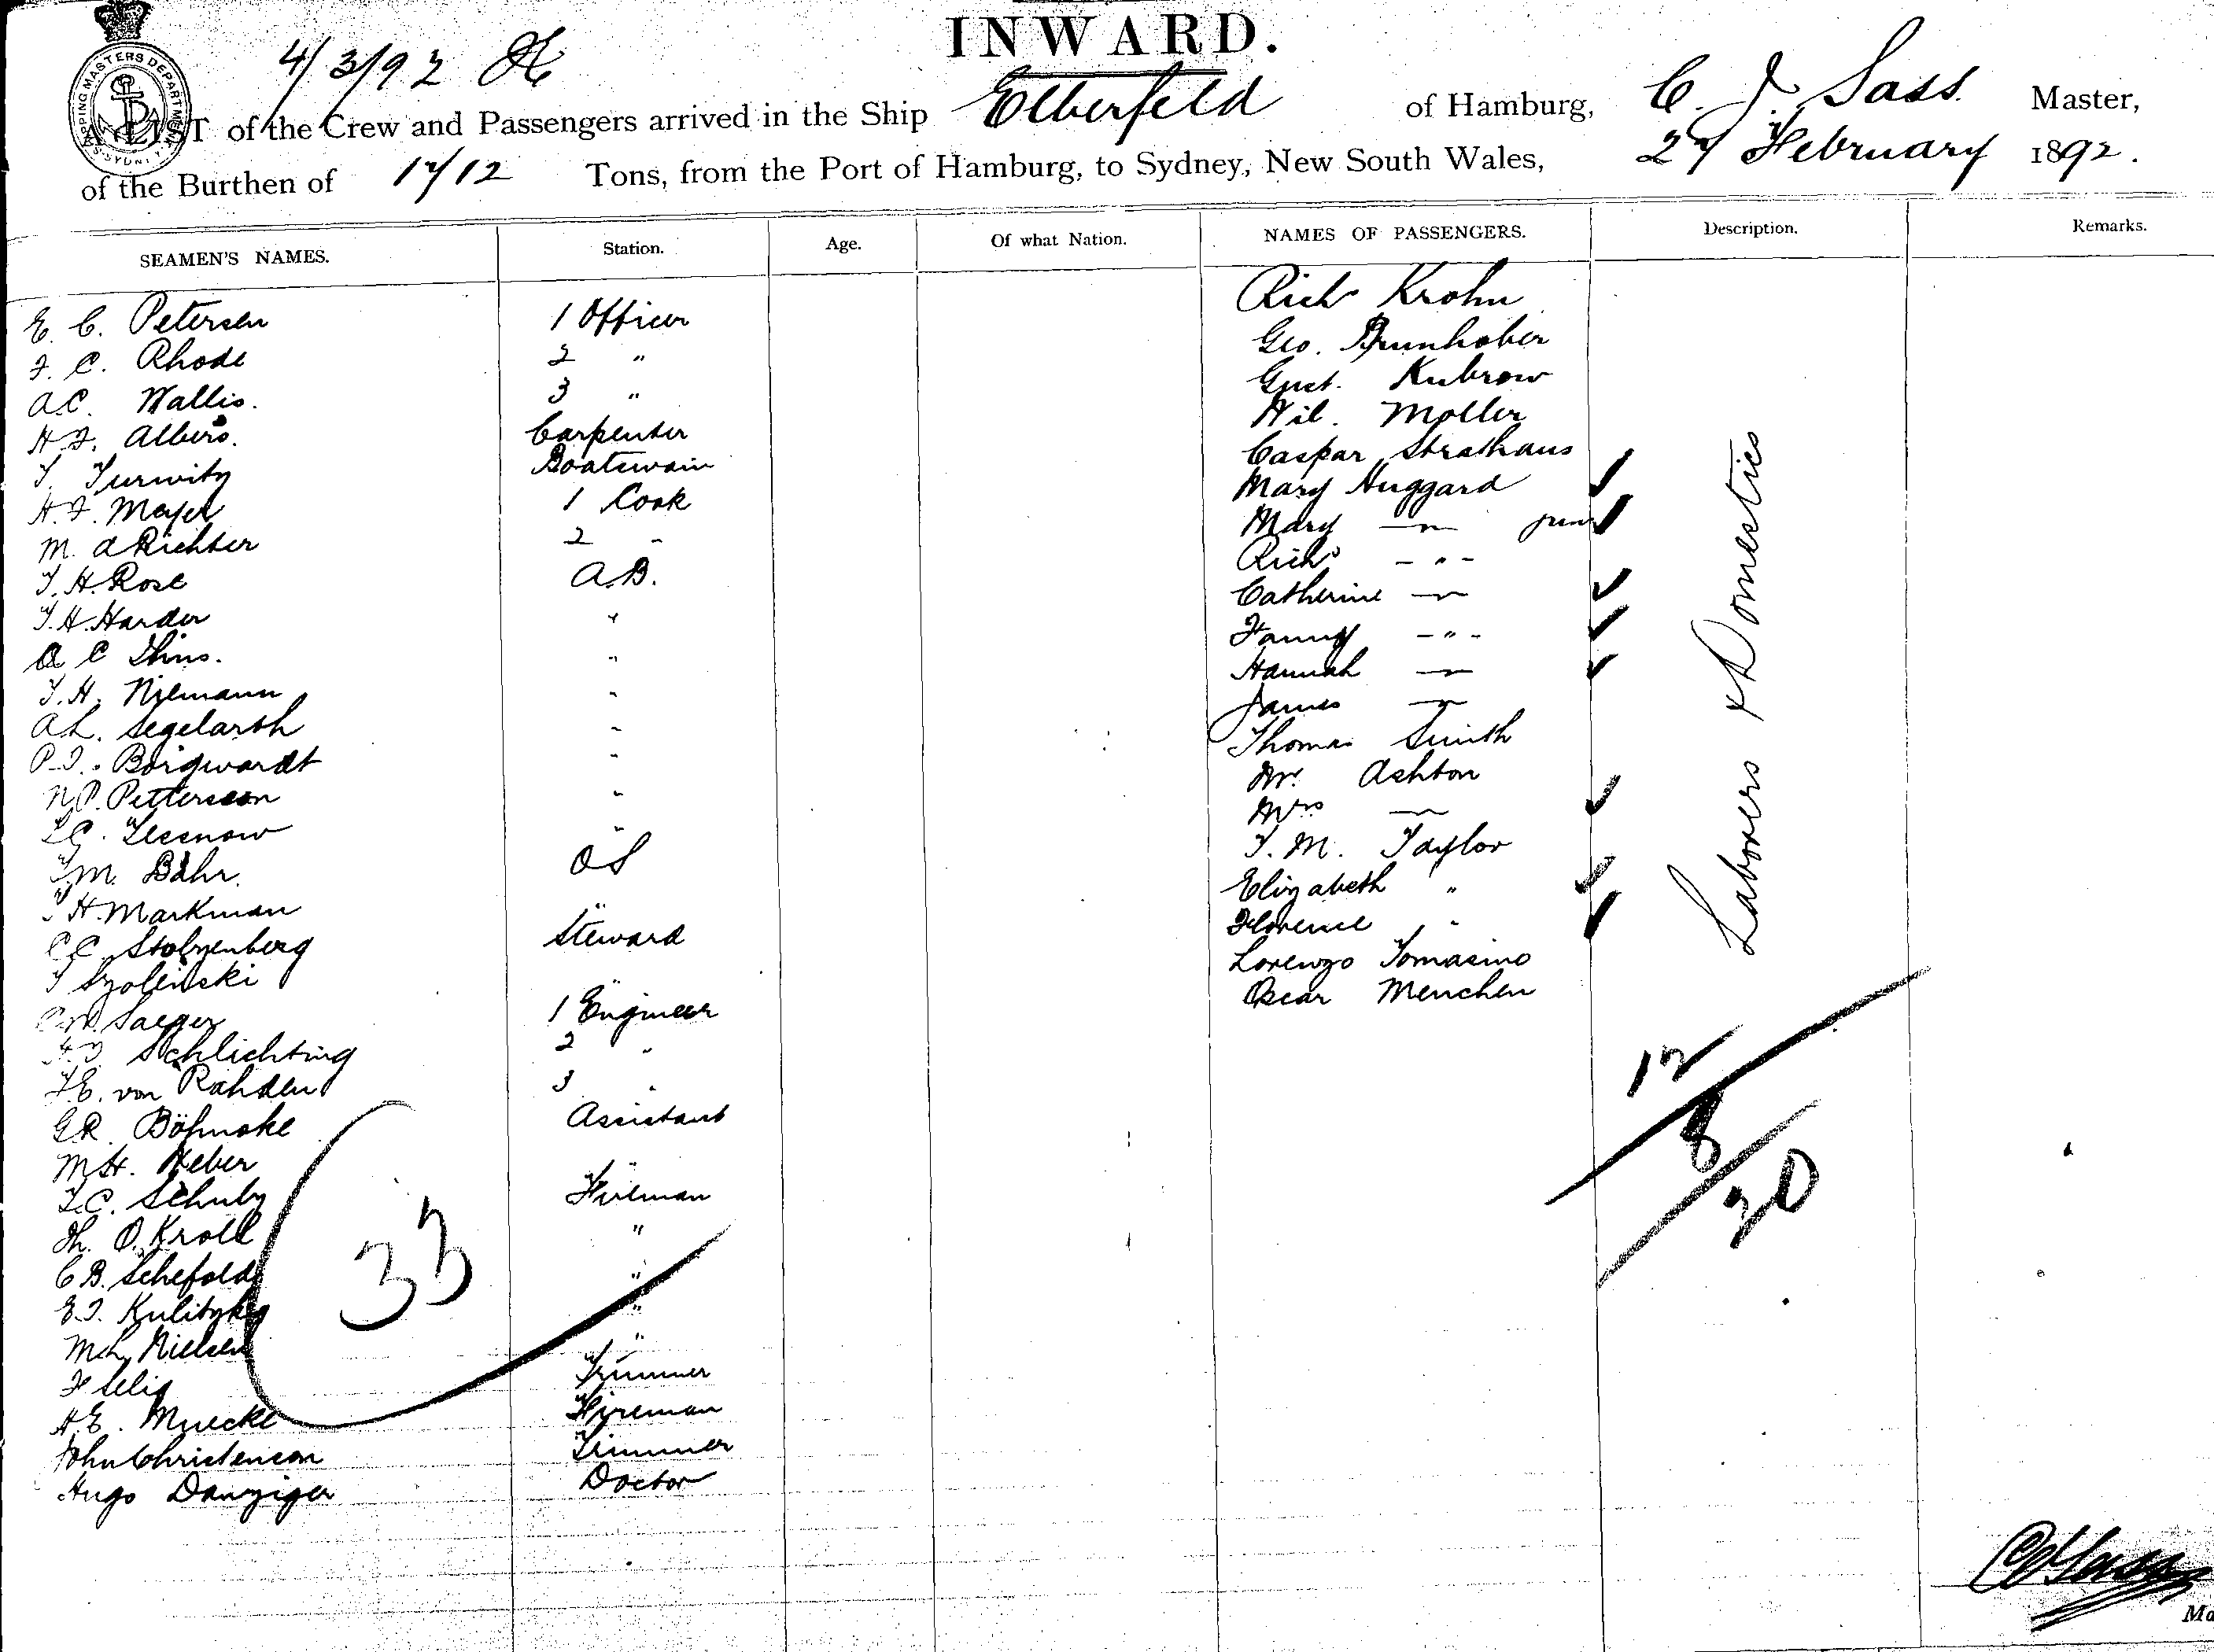 INWARD.
4/3/92
SHIPPING MASTERS DEPARTMENT SYDNEY
A LIST of the Crew and Passengers arrived in the Ship Elberfeld of Hamburg, C. J. Sass. Master,
of the Burthen of 1712 Tons, from the Port of Hamburg, to Sydney, New South Wales, 27 February 1892.
SEAMEN'S NAMES. Station. Age. Of what Nation. NAMES OF PASSENGERS. Description. Remarks.
E. C. Petersen 1 Officer
F. C. Rhode 2 "
A.C. Wallis. 3 "
H.F. Albers. Carpenter
Boatswain
H.F. Meyer 1 Cook
M. A Richter 2 -
J. H. Rose A.B.
J. H. Harder "
A C "
J. H. Niemann "
A.L. Segelarth "
P.J. Borgwardt "
N.P. Petterson "
"
J.M. Bähr. OS
J H. Markman "
C.C. Stolzenberg Steward
J Szolenski "
Saeger 1 Engineer
Schlichting 2 "
J.E. von Rahden 3 "
G.R. Böhncke Assistant
M.H. Weber "
J.C. Schulz Fireman
Th. O. Kroll "
C B. Schefold "
E.J. Kulitzky "
M.L. Nielsen "
F Selig Trimmer
H.E. Muecke Fireman
John Christenson Trimmer
Hugo Danziger Doctor
33
Rich Krohn
Geo. Brunhober
Gust. Kubrow
Wil. Moller
Caspar Strathaus
Mary Huggard
Mary — " — jun
Rich - " -
Catherine — " —
Fanny - " -
Hannah — " —
James — " —
Thomas Smith
Mr. Ashton
Mrs — " —
J. M. Taylor
Elizabeth "
Florence "
Lorenzo Tomasino
Oscar Menchen
Laborers & Domestics
12
8
20
C J Sass